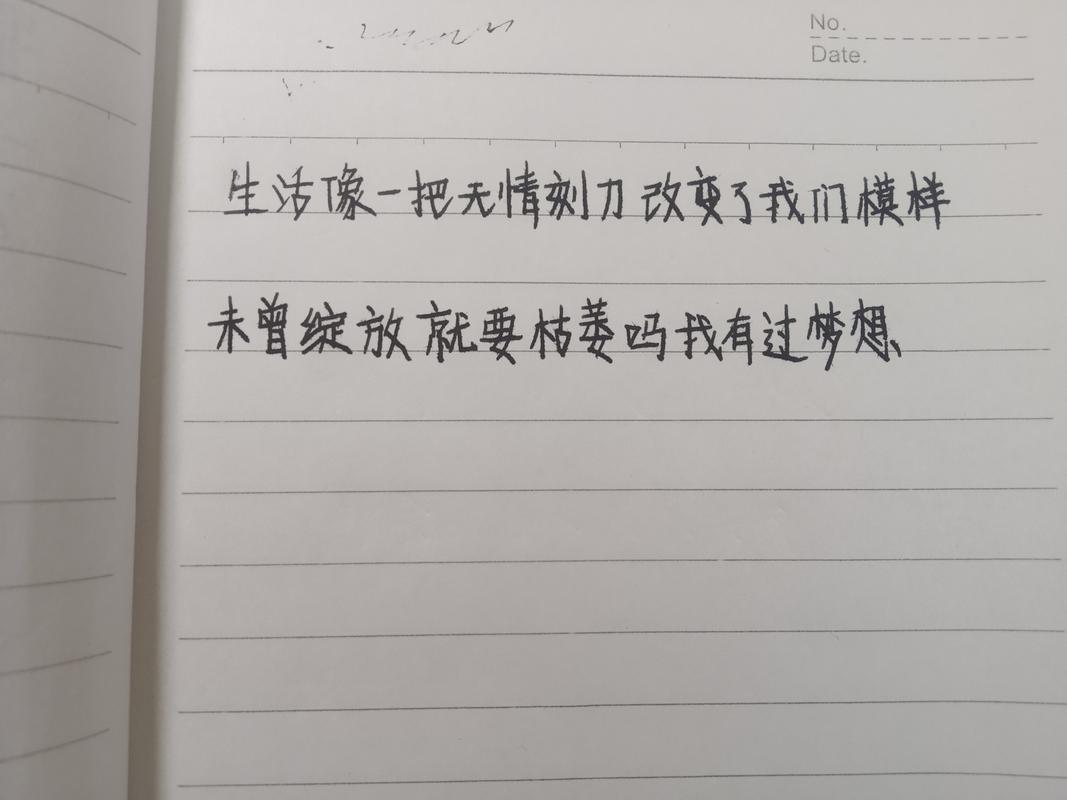 No.
Date.
生活像一把无情刻刀改变了我们模样
未曾绽放就要枯萎吗我有过梦想、